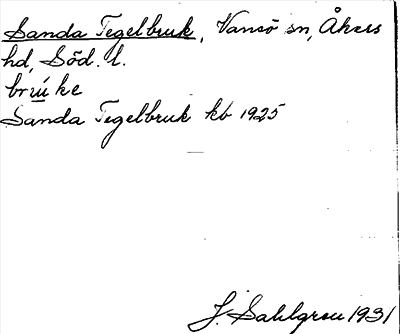 Sanda Tegelbruk, Vansö sn, Åkers
hd, Söd. l.
brúke
Sanda Tegelbruk kb 1925
J. Sahlgren 1931